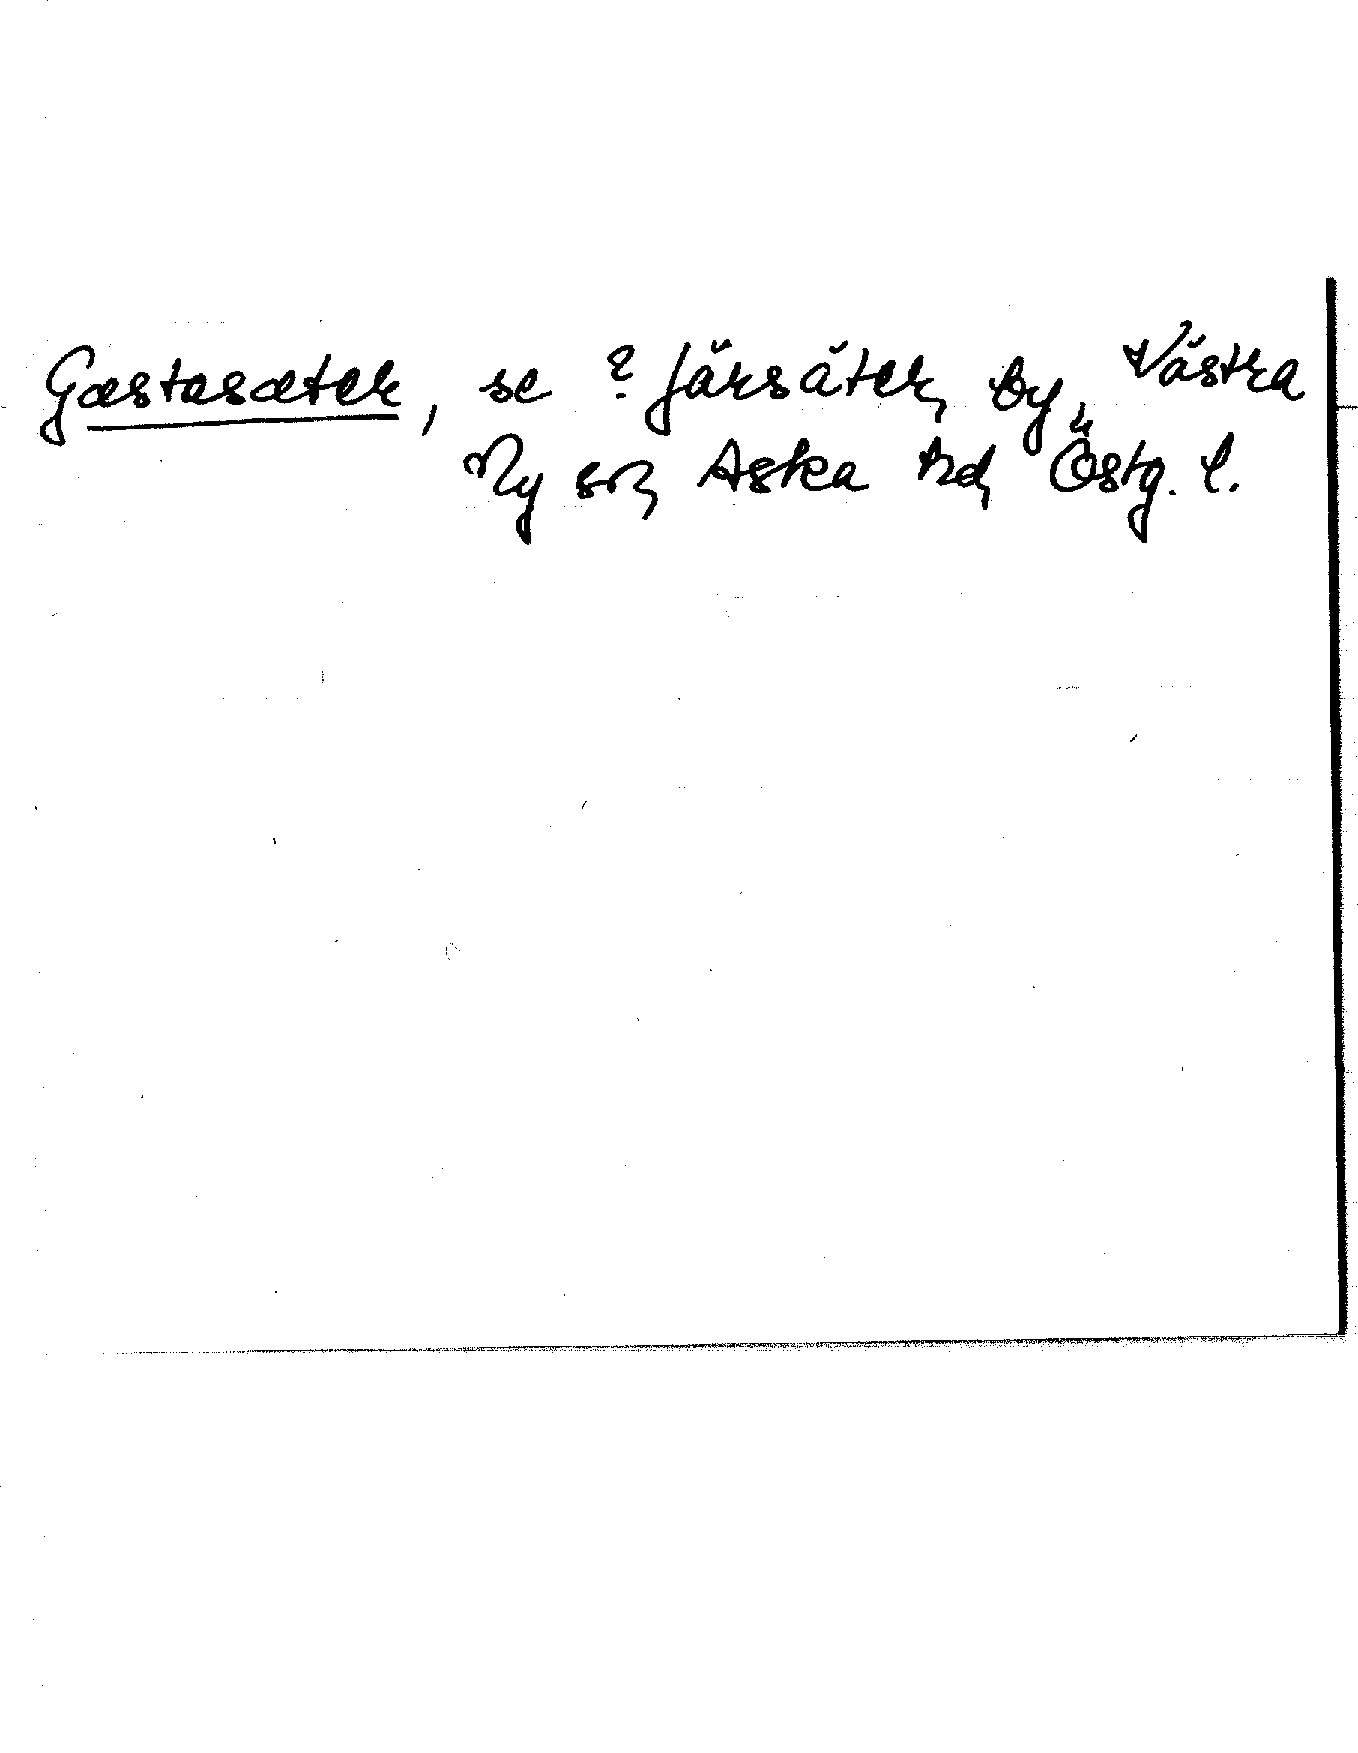 Gæstasæter, se ? Järsäter, by, Västra
Ny sn, Aska hd, Östg. l.